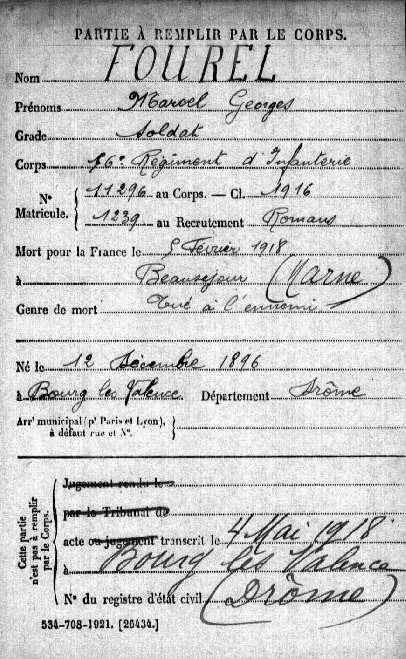 PARTIE À REMPLIR PAR LE CORPS.
Nom FOUREL
Prénoms Marcel Georges
Grade Soldat
Corps 76e Régiment d'Infanterie
N° Matricule. { 11296 au Corps. — Cl. 1916
1239 au Recrutement Romans
Mort pour la France le 5 Février 1918
à Beauséjour (Marne)
Genre de mort Tué à l'ennemi
Né le 12 Décembre 1896
à Bourg les Valence Département Drôme
Arrt municipal (pr Paris et Lyon), à défaut rue et N°. }
Cette partie n'est pas à remplir par le Corps.
Jugement rendu le
par le Tribunal de
acte ou jugement transcrit le 4 Mai 1918
à Bourg lès Valence
N° du registre d'état civil (Drôme)
534-708-1921. [26434.]